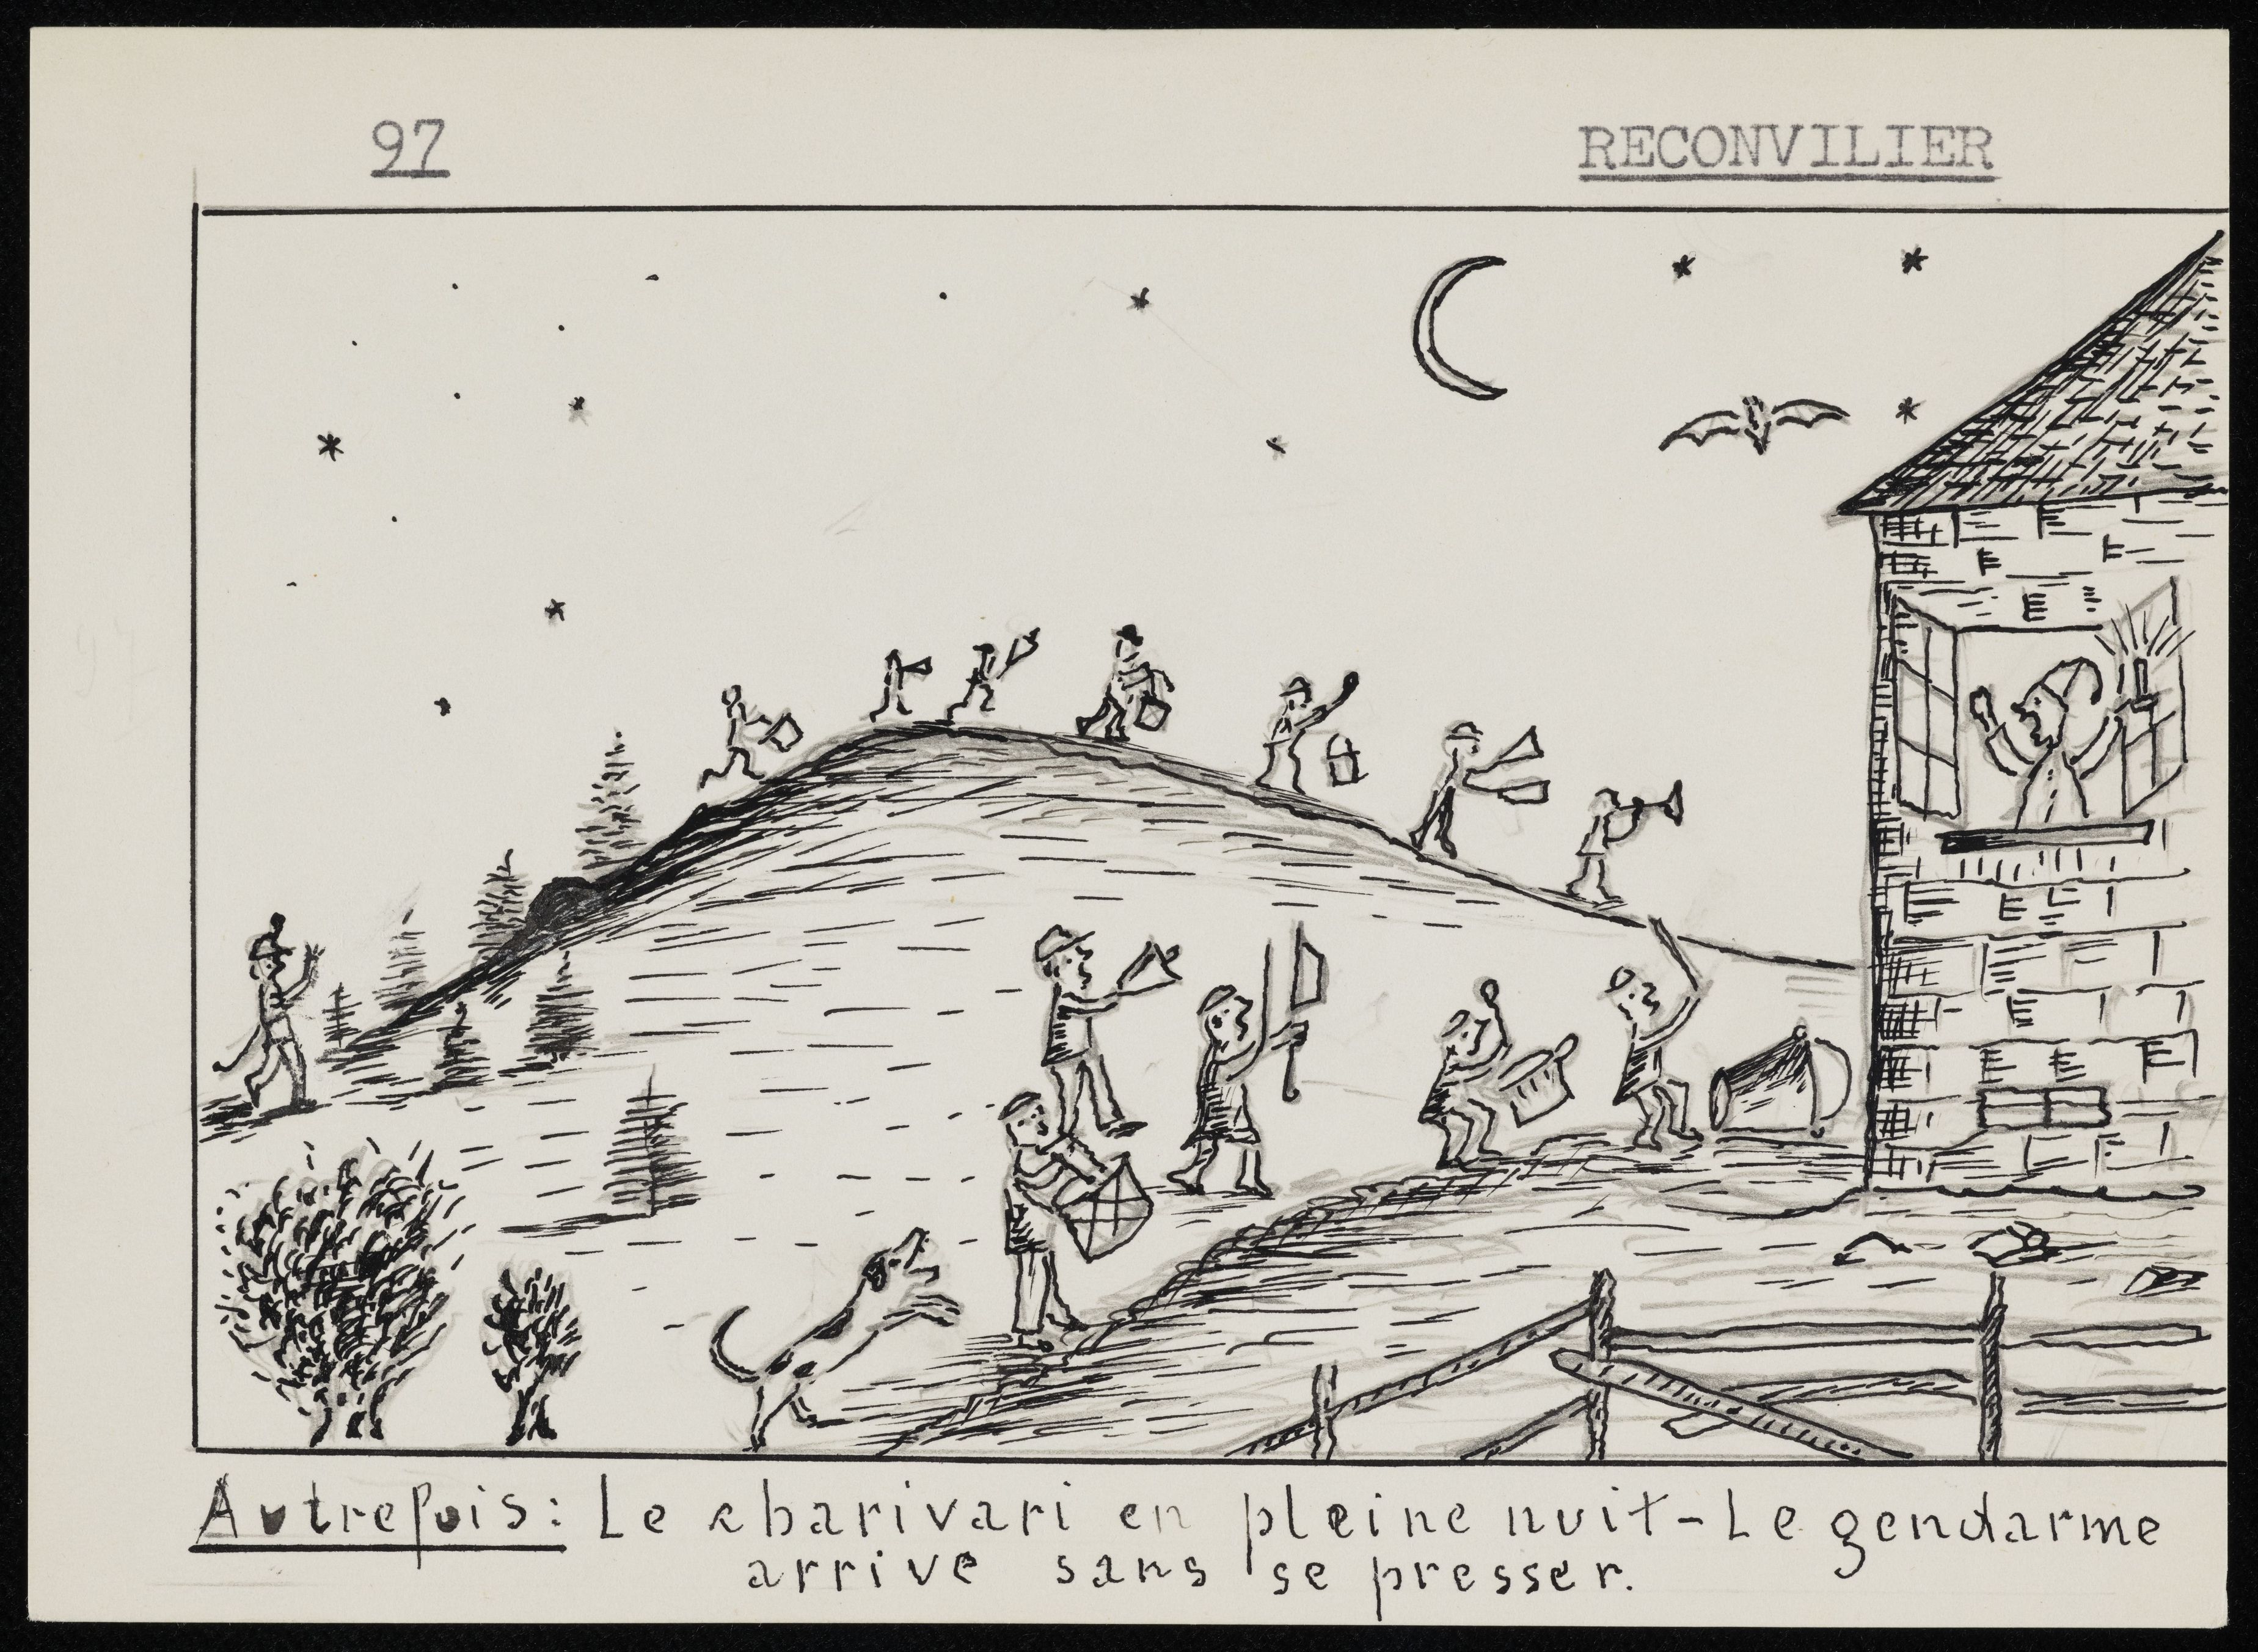 97
RECONVILIER
Autrefois: Le charivari en pleine nuit - Le gendarme
arrive sans se presser.